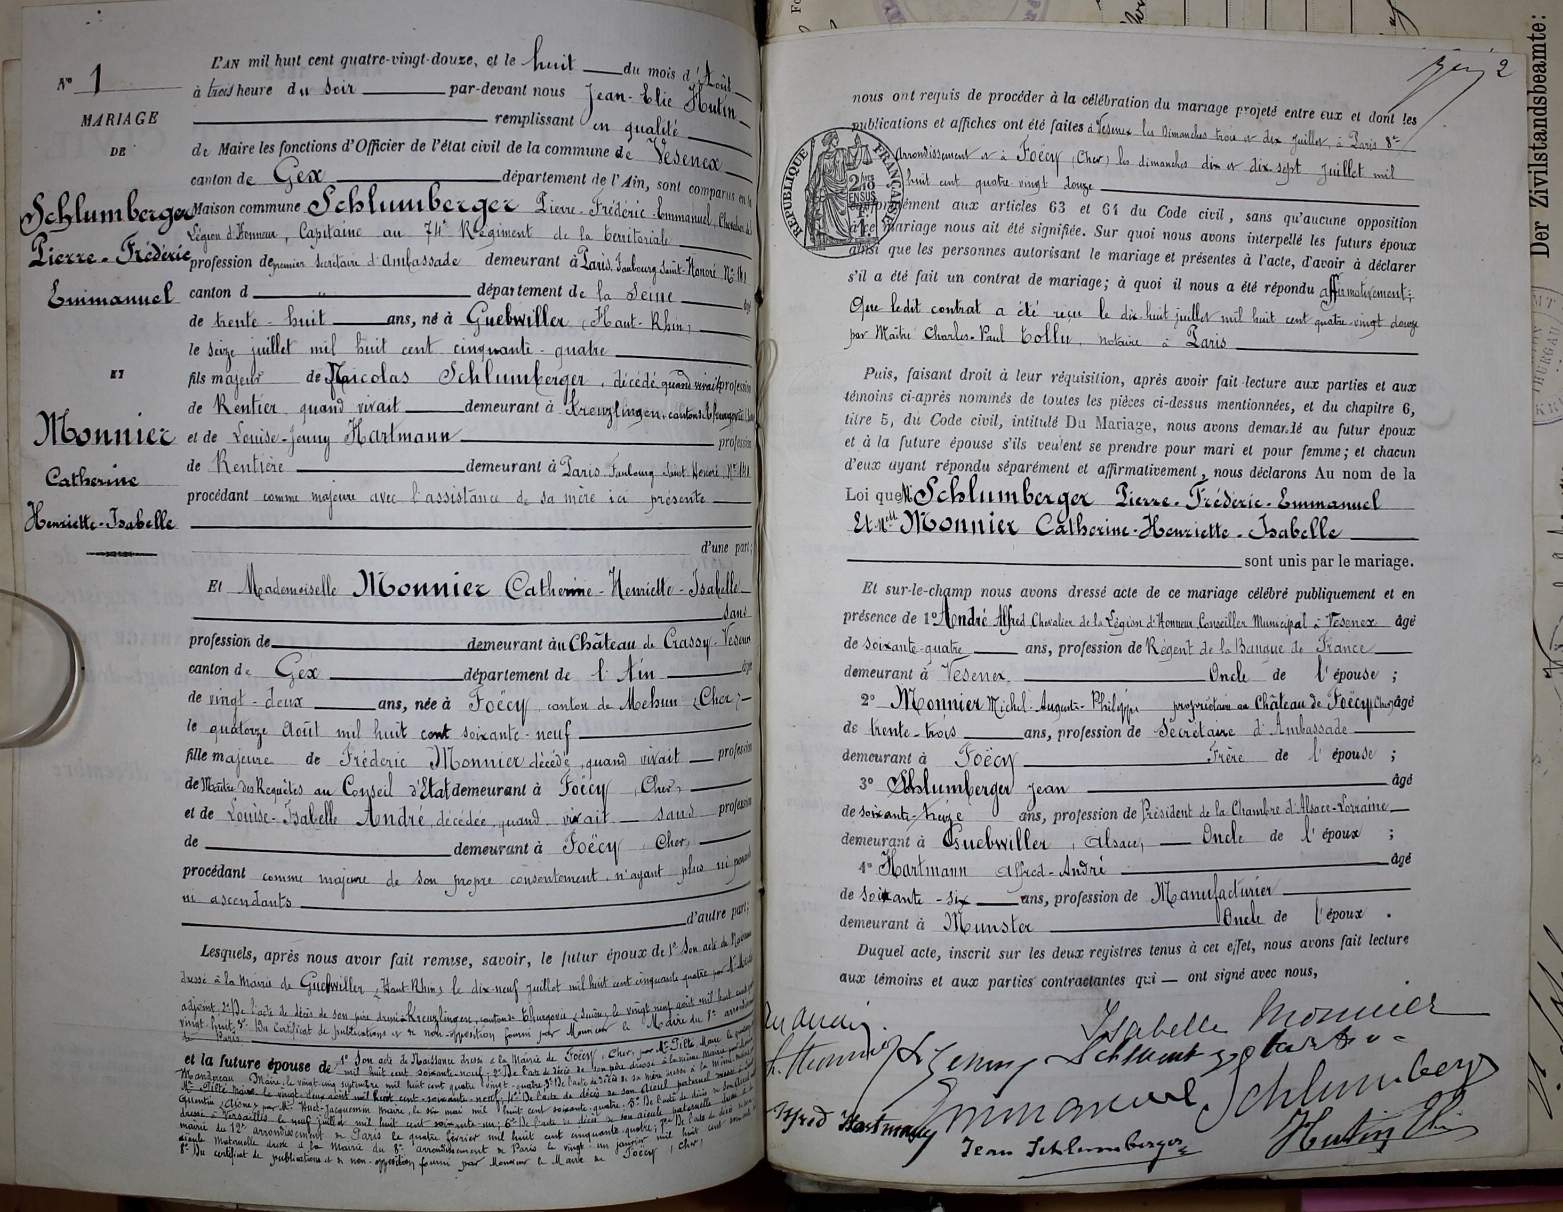 N° 1
MARIAGE
DE
Schlumberger
Pierre-Frédéric
Emmanuel
ET
Monnier
Catherine
Henriette-Isabelle
L'AN mil huit cent quatre-vingt-douze, et le huit du mois d'Août
à trois heure du Soir par-devant nous Jean-Elie Hutin
remplissant en qualité
de Maire les fonctions d'Officier de l'état civil de la commune de Vesenex
canton de Gex département de l'Ain, sont comparus en la
Maison commune Schlumberger Pierre-Frédéric-Emmanuel, Chevalier de la
Légion d'Honneur, Capitaine au 74e Régiment de la territoriale
profession de premier Secrétaire d'Ambassade demeurant à Paris, Faubourg Saint-Honoré N° 141
canton d " département de la Seine âgé
de trente-huit ans, né à Guebwiller (Haut-Rhin)
le seize juillet mil huit cent cinquante-quatre
fils majeur de Nicolas Schlumberger, décédé quand vivait profession
de Rentier quand vivait demeurant à Kreuzlingen, canton de Thurgovie
et de Louise-Jenny Hartmann profession
de Rentière demeurant à Paris, Faubourg Saint-Honoré, N° 141
procédant comme majeure avec l'assistance de sa mère ici présente
d'une part;
Et Mademoiselle Monnier Catherine-Henriette-Isabelle
sans
profession de demeurant au Château de Crassy-Vesenex
canton de Gex département de l'Ain âgée
de vingt-deux ans, née à Foëcy canton de Mehun (Cher)
le quatorze Août mil huit cent soixante-neuf
fille majeure de Fréderic Monnier décédé, quand vivait profession
de Maître des Requêtes au Conseil d'Etat demeurant à Foëcy (Cher)
et de Louise-Isabelle André, décédée, quand vivait sans profession
de demeurant à Foëcy (Cher)
procédant comme majeure de son propre consentement, n'ayant plus ni parents
ni ascendants
d'autre part;
Lesquels, après nous avoir fait remise, savoir, le futur époux de 1° Son acte de Naissance
dressé à la Mairie de Guebwiller (Haut-Rhin) le dix-neuf juillet mil huit cent cinquante quatre par
adjoint; 2° De l'acte de décès de son père dressé à Kreuzlingen, canton de Thurgovie (Suisse) le vingt neuf août mil huit cent
vingt-huit; 3° Du Certificat de publications et de non-opposition fourni par Monsieur le Maire du 8e arrondissement
de Paris
et la future épouse de 1° Son acte de Naissance dressé à la Mairie de Foëcy (Cher) par Mr Pillé, Maire le
mil huit cent soixante-neuf; 2° De l'acte de décès de son père dressé à la même Mairie par
Maire, le vingt-cinq septembre mil huit cent quatre-vingt-quatre; 3° De l'acte de décès de sa mère dressé à la même Mairie
Mr Pillé Maire le vingt-deux août mil huit cent soixante-neuf; 4° De l'acte de décès de son aïeul paternel dressé à
Quentin (Aisne) par Mr Huet-Jacquemin Maire, le six mai mil huit cent soixante-quatre; 5° De l'acte de décès de son aïeul
dressé à Versailles le neuf juillet mil huit cent soixante-un; 6° De l'acte de décès de son aïeule maternelle
mairie du 12e arrondissement de Paris le quatre février mil huit cent cinquante-quatre; 7° De l'acte de décès de son
aïeule Maternelle dressé à la Mairie du 8e arrondissement de Paris le vingt-un janvier mil huit cent
8° Du certificat de publications et de non-opposition fourni par Monsieur le Maire de Foëcy (Cher)
2
nous ont requis de procéder à la célébration du mariage projeté entre eux et dont les
publications et affiches ont été faites à Vesenex les Dimanches trois et dix Juillet, à Paris 8e
Arrondissement et à Foëcy (Cher) les dimanches dix et dix sept Juillet mil
huit cent quatre vingt douze
conformément aux articles 63 et 64 du Code civil, sans qu'aucune opposition
à ce mariage nous ait été signifiée. Sur quoi nous avons interpellé les futurs époux
ainsi que les personnes autorisant le mariage et présentes à l'acte, d'avoir à déclarer
s'il a été fait un contrat de mariage; à quoi il nous a été répondu affirmativement;
Que le dit contrat a été reçu le dix-huit juillet mil huit cent quatre-vingt douze
par Maître Charles-Paul Tollu, notaire à Paris
Puis, faisant droit à leur réquisition, après avoir fait lecture aux parties et aux
témoins ci-après nommés de toutes les pièces ci-dessus mentionnées, et du chapitre 6,
titre 5, du Code civil, intitulé Du Mariage, nous avons demandé au futur époux
et à la future épouse s'ils veulent se prendre pour mari et pour femme; et chacun
d'eux ayant répondu séparément et affirmativement, nous déclarons Au nom de la
Loi que Mr Schlumberger Pierre-Fréderic-Emmanuel
Et Melle Monnier Catherine-Henriette-Isabelle
sont unis par le mariage.
Et sur-le-champ nous avons dressé acte de ce mariage célébré publiquement et en
présence de 1° André Alfred Chevalier de la Légion d'Honneur, Conseiller Municipal à Vesenex âgé
de soixante-quatre ans, profession de Régent de la Banque de France
demeurant à Vesenex Oncle de l'épouse;
2° Monnier Michel-Auguste-Philippe propriétaire au Château de Foëcy (Cher) âgé
de trente-trois ans, profession de Secrétaire d'Ambassade
demeurant à Foëcy Frère de l'épouse;
3° Schlumberger Jean âgé
de soixante-treize ans, profession de Président de la Chambre d'Alsace-Lorraine
demeurant à Guebwiller (Alsace) Oncle de l'époux;
4° Hartmann Alfred-André âgé
de soixante-six ans, profession de Manufacturier
demeurant à Munster Oncle de l'époux.
Duquel acte, inscrit sur les deux registres tenus à cet effet, nous avons fait lecture
aux témoins et aux parties contractantes qui ont signé avec nous,
Isabelle Monnier
Jenny Schlumberger Hartmann
Emmanuel Schlumberger
Alfred Hartmann
Jean Schlumberger
Hutin Elie
RÉPUBLIQUE FRANÇAISE
Der Zivilstandsbeamte:
THURGAU